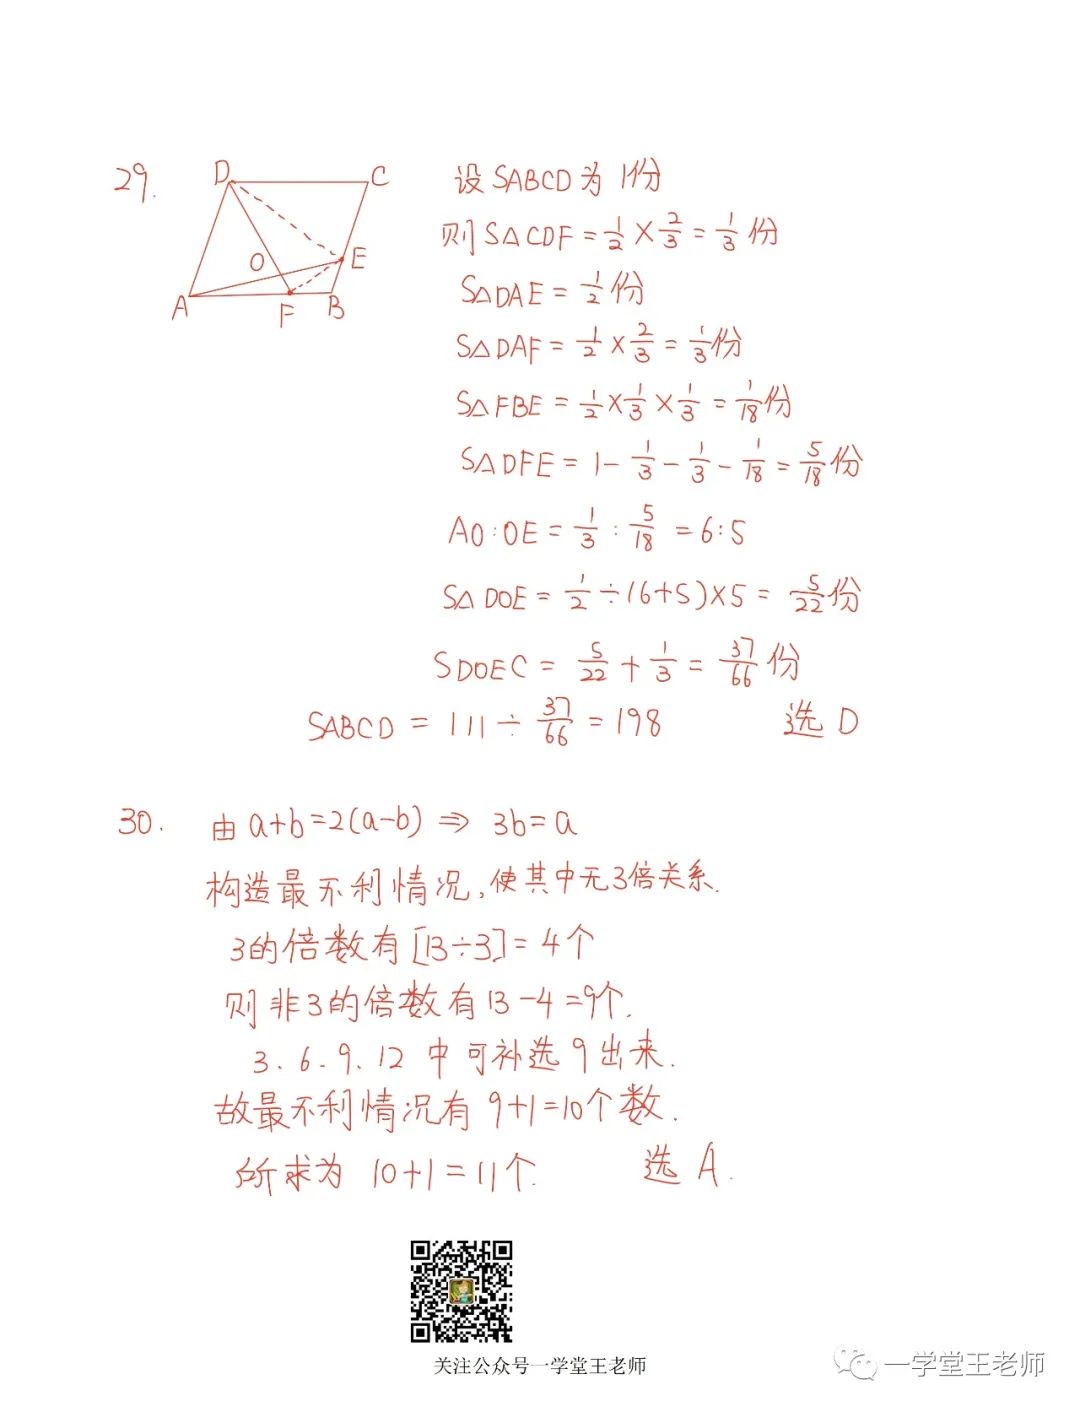 29.
D C
O E
A F B
设SABCD为1份
则S△CDF=1/2×2/3=1/3份
S△DAE=1/2份
S△DAF=1/2×2/3=1/3份
S△FBE=1/2×1/3×1/3=1/18份
S△DFE=1-1/3-1/3-1/18=5/18份
AO:OE=1/3:5/18=6:5
S△DOE=1/2÷(6+5)×5=5/22份
SDOEC=5/22+1/3=37/66份
SABCD=111÷37/66=198 选D
30. 由a+b=2(a-b)⇒3b=a
构造最不利情况,使其中无3倍关系.
3的倍数有[13÷3]=4个
则非3的倍数有13-4=9个.
3.6.9.12中可补选9出来.
故最不利情况有9+1=10个数.
所求为10+1=11个. 选A.
关注公众号一学堂王老师
一学堂王老师